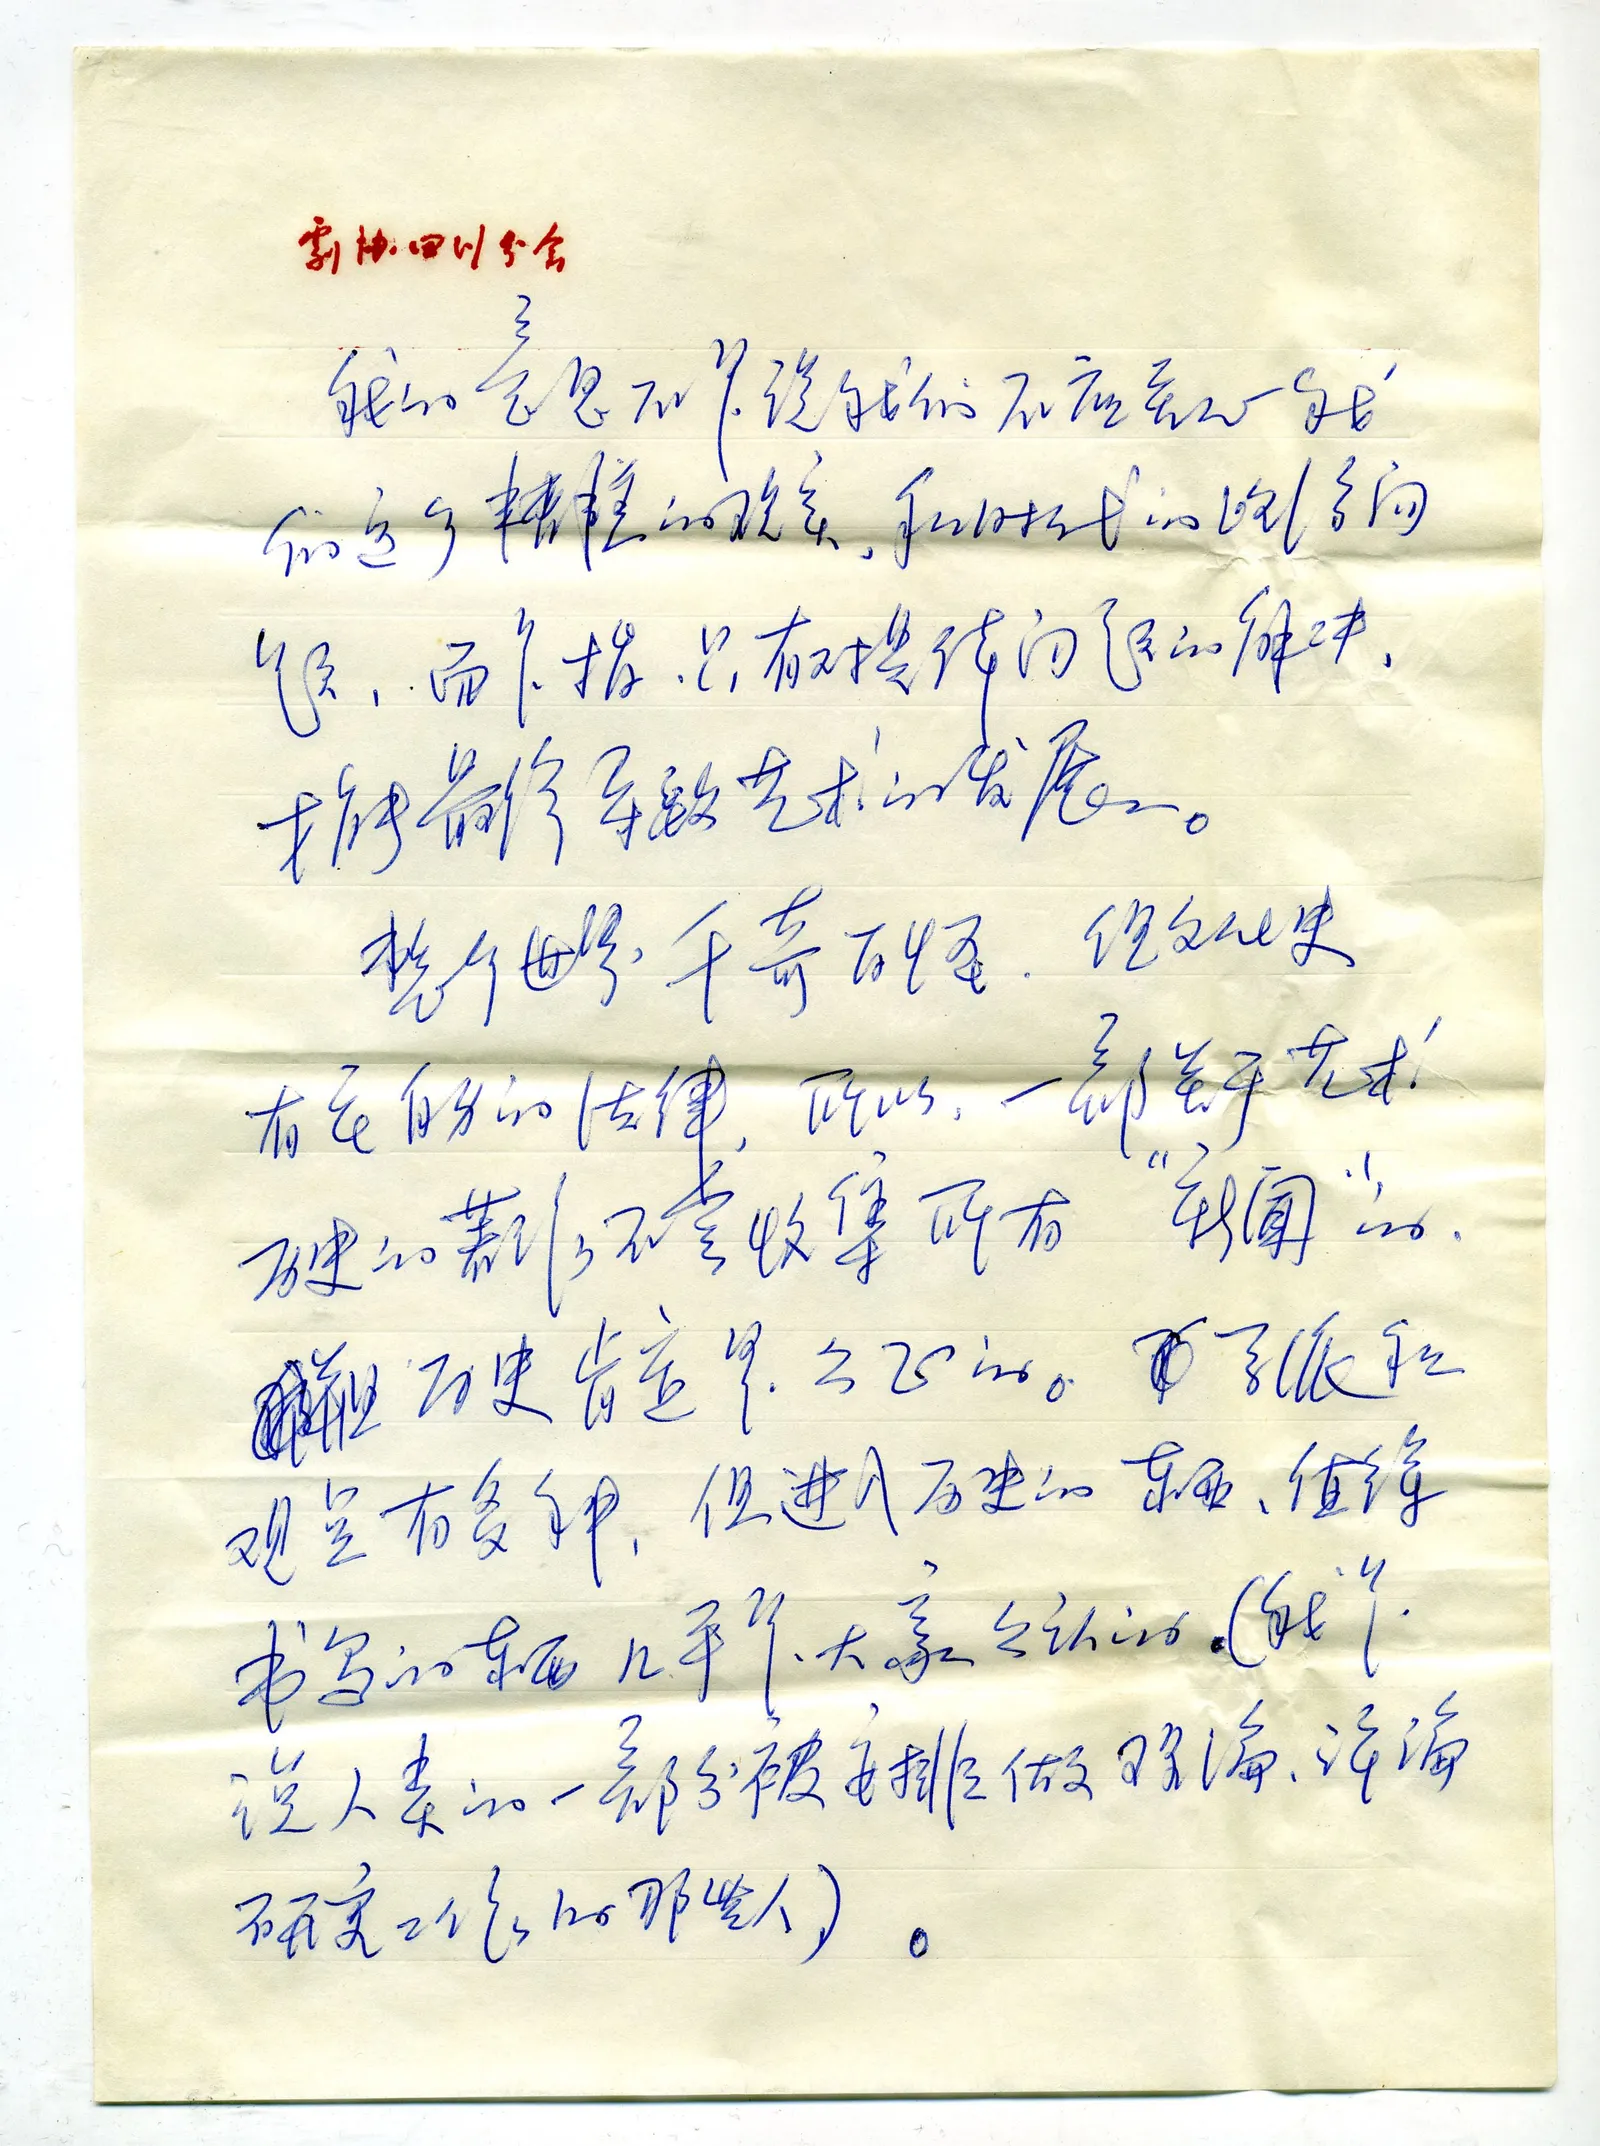 剧协四川分会
我的意思不是说我们不应关心我
们这个糟糕的现实，和时代的迫切问
题，而是指只有对具体问题的解决，
才能最终导致艺术的发展。
整个世界千奇百怪．但文化史
有它自身的法律，所以，一部关于艺术
历史的著作不会收集所有“新闻”的．
但历史肯定是公正的。学派和
观点有多种，但进入历史的东西、值得
书写的东西几乎是大家公认的．（我是
说人类的一部分被安排做理论、评论
研究工作的那些人）。